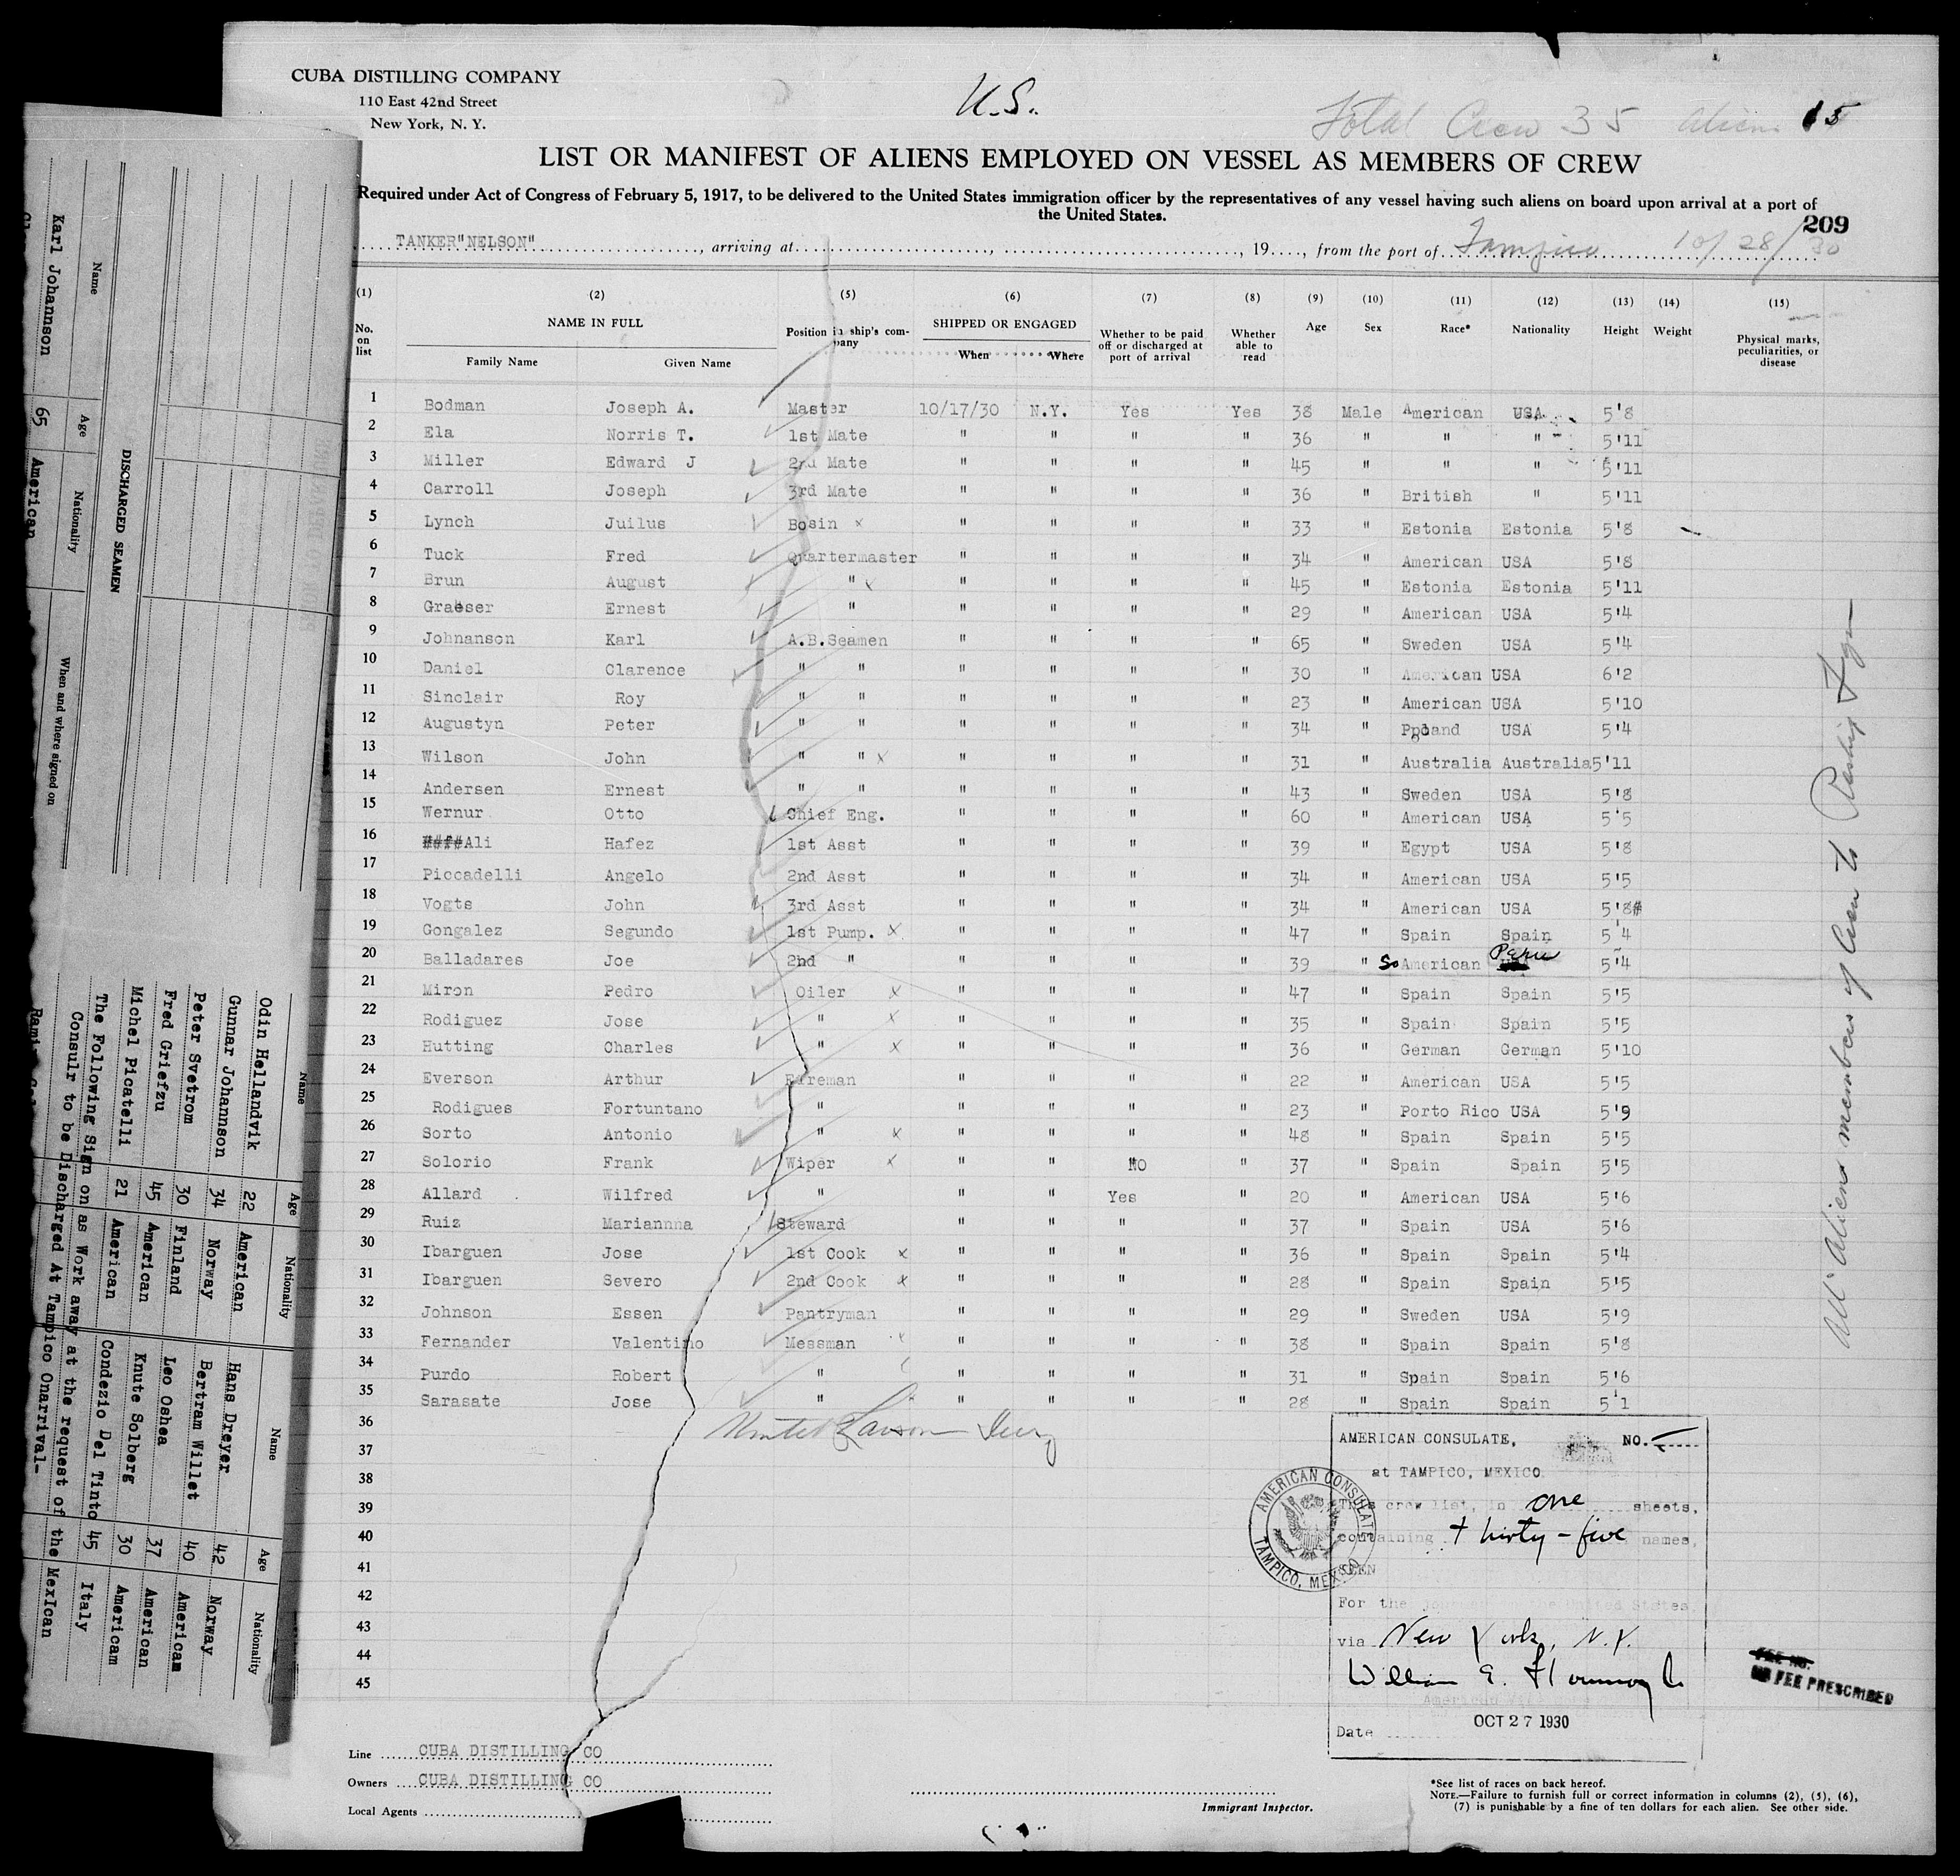 CUBA DISTILLING COMPANY
110 East 42nd Street
New York, N. Y.
U.S.
Total Crew 35 aliens 15
LIST OR MANIFEST OF ALIENS EMPLOYED ON VESSEL AS MEMBERS OF CREW
Required under Act of Congress of February 5, 1917, to be delivered to the United States immigration officer by the representatives of any vessel having such aliens on board upon arrival at a port of
the United States.
209
TANKER"NELSON", arriving at, 19...., from the port of Tampico 10/28/30
(1) (2) (5) (6) (7) (8) (9) (10) (11) (12) (13) (14) (15)
No. on list NAME IN FULL Position in ship's company SHIPPED OR ENGAGED Whether to be paid off or discharged at port of arrival Whether able to read Age Sex Race* Nationality Height Weight Physical marks, peculiarities, or disease
Family Name Given Name When Where
1 Bodman Joseph A. Master 10/17/30 N.Y. Yes Yes 38 Male American USA 5'8
2 Ela Norris T. 1st Mate " " " " 36 " " " 5'11
3 Miller Edward J 2nd Mate " " " " 45 " " " 5'11
4 Carroll Joseph 3rd Mate " " " " 36 " British " 5'11
5 Lynch Juilus Bosin x " " " " 33 " Estonia Estonia 5'8
6 Tuck Fred Quartermaster " " " " 34 " American USA 5'8
7 Brun August " x " " " " 45 " Estonia Estonia 5'11
8 Graeser Ernest " " " " " 29 " American USA 5'4
9 Johnanson Karl A.B.Seamen " " " " 65 " Sweden USA 5'4
10 Daniel Clarence " " " " " " 30 " American USA 6'2
11 Sinclair Roy " " " " " " 23 " American USA 5'10
12 Augustyn Peter " " " " " " 34 " Poland USA 5'4
13 Wilson John " " x " " " " 31 " Australia Australia 5'11
14 Andersen Ernest " " " " " " 43 " Sweden USA 5'8
15 Wernur Otto Chief Eng. " " " " 60 " American USA 5'5
16 ####Ali Hafez 1st Asst " " " " 39 " Egypt USA 5'8
17 Piccadelli Angelo 2nd Asst " " " " 34 " American USA 5'5
18 Vogts John 3rd Asst " " " " 34 " American USA 5'8#
19 Gongalez Segundo 1st Pump. x " " " " 47 " Spain Spain 5'4
20 Balladares Joe 2nd " " " " " 39 " So American Peru 5'4
21 Miron Pedro Oiler x " " " " 47 " Spain Spain 5'5
22 Rodiguez Jose " x " " " " 35 " Spain Spain 5'5
23 Hutting Charles " x " " " " 36 " German German 5'10
24 Everson Arthur Fireman " " " " 22 " American USA 5'5
25 Rodigues Fortuntano " " " " " 23 " Porto Rico USA 5'9
26 Sorto Antonio " x " " " " 48 " Spain Spain 5'5
27 Solorio Frank Wiper x " " NO " 37 " Spain Spain 5'5
28 Allard Wilfred " " " Yes " 20 " American USA 5'6
29 Ruiz Mariannna Steward " " " " 37 " Spain USA 5'6
30 Ibarguen Jose 1st Cook x " " " " 36 " Spain Spain 5'4
31 Ibarguen Severo 2nd Cook x " " " " 28 " Spain Spain 5'5
32 Johnson Essen Pantryman " " " " 29 " Sweden USA 5'9
33 Fernander Valentino Messman x " " " " 38 " Spain Spain 5'8
34 Purdo Robert " " " " " 31 " Spain Spain 5'6
35 Sarasate Jose " " " " " 28 " Spain Spain 5'1
36
37
38
39
40
41
42
43
44
45
All Aliens members of Crew to Reship Fgn
AMERICAN CONSULATE, NO.
at TAMPICO, MEXICO
This crew list, in one sheets,
containing thirty-five names,
SEEN
For the journey to the United States
via New York, N.Y.
William E.
Date OCT 27 1930
AMERICAN CONSULATE
TAMPICO, MEXICO
NO FEE PRESCRIBED
Line CUBA DISTILLING CO
Owners CUBA DISTILLING CO
Local Agents
Immigrant Inspector.
*See list of races on back hereof.
NOTE.—Failure to furnish full or correct information in columns (2), (5), (6),
(7) is punishable by a fine of ten dollars for each alien. See other side.
DISCHARGED SEAMEN
Name Age Nationality When and where signed on
Karl Johannson 65 American
Name Age Nationality Name Age Nationality
Odin Hellandvik 22 American Hans Dreyer 42 Norway
Gunnar Johannson 34 Norway Bertram Willet 40 American
Peter Svetrom 30 Finland Leo Oshea 37 American
Fred Griefzu 45 American Knute Solberg 30 American
Michel Picatelli 21 American Condezio Del Tinto 45 Italy
The Following Sign on as Work away at the request of the Mexican
Consulr to be Discharged At Tampico Onarrival-